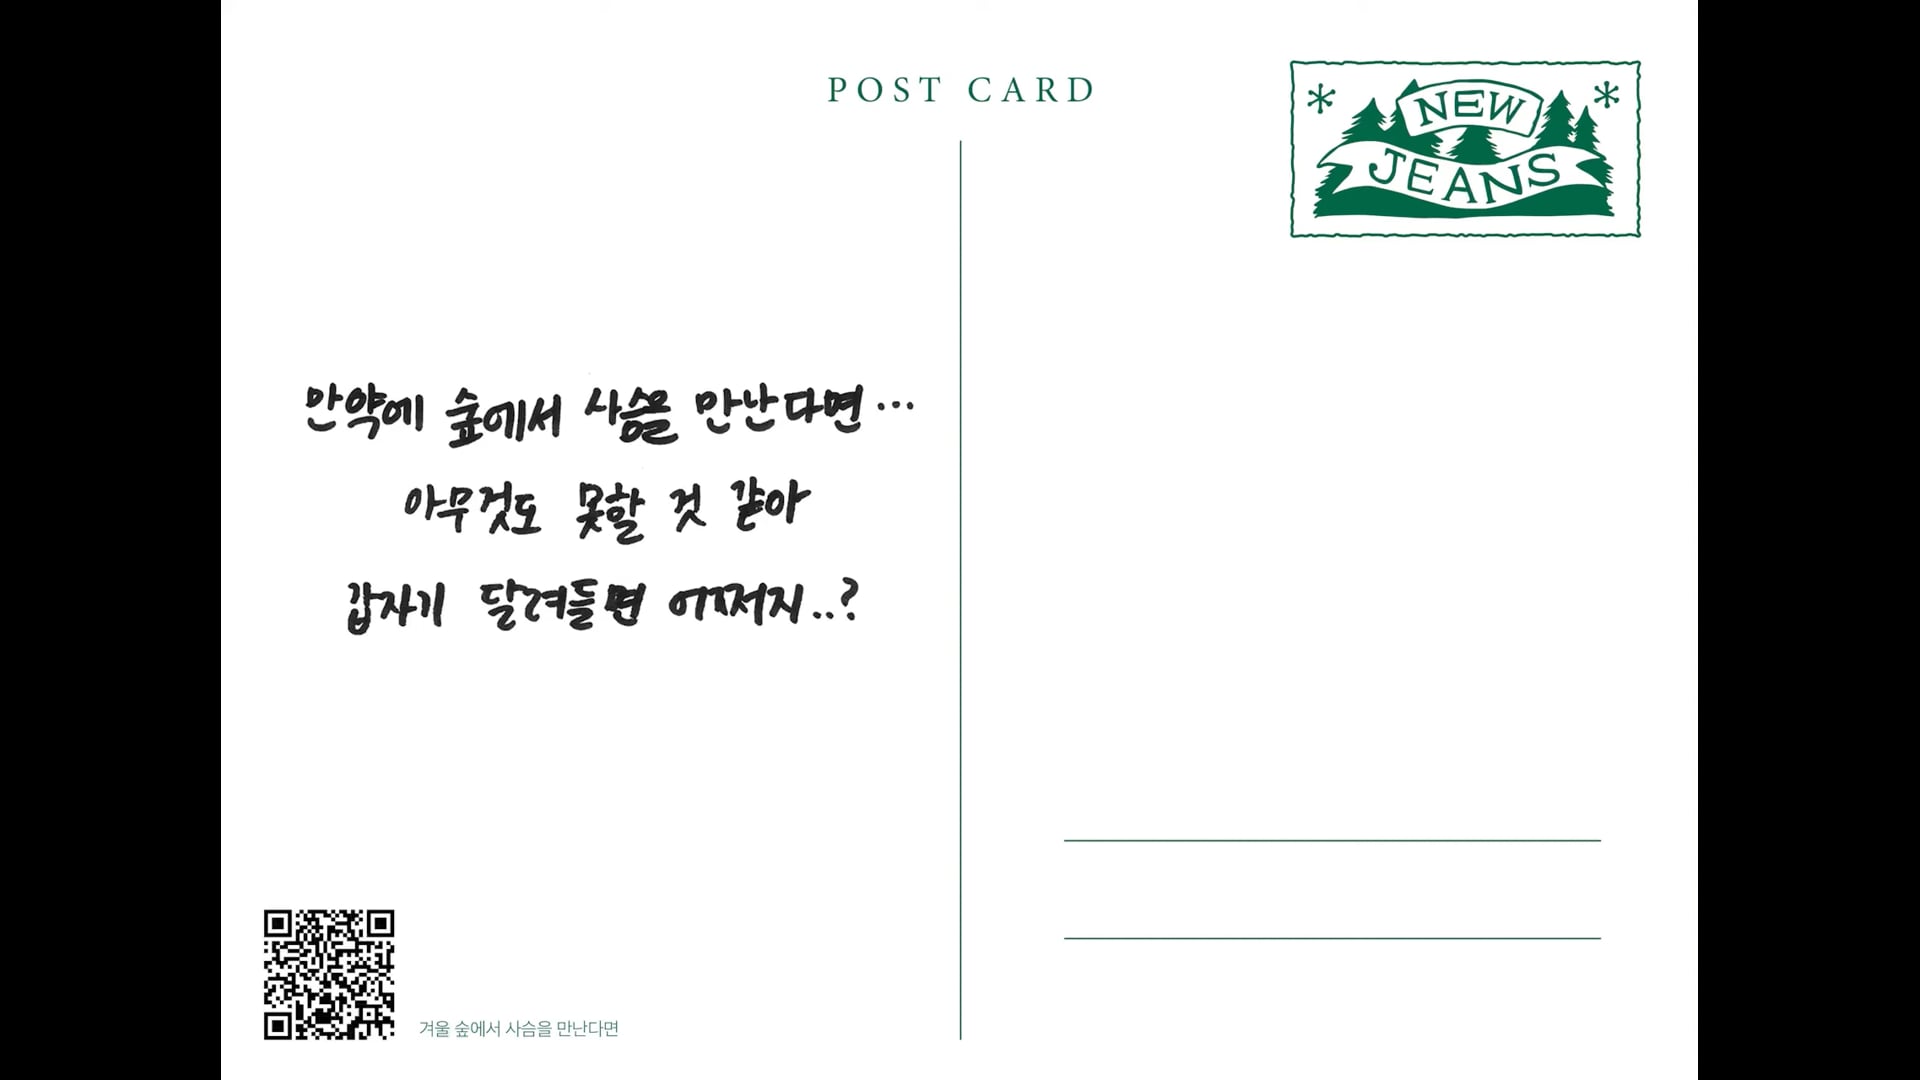 POST CARD
NEW
JEANS
만약에 숲에서 사슴을 만난다면…
아무것도 못할 것 같아
갑자기 달려들면 어쩌지..?
겨울 숲에서 사슴을 만난다면